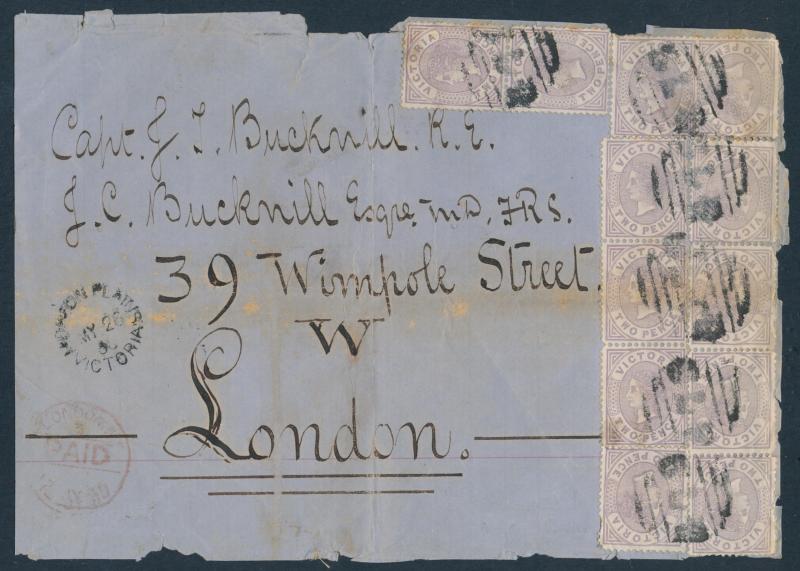 Capt. J. T. Bucknill. R. E.
J. C. Bucknill Esqre. M.D, F.R.S.
39 Wimpole Street.
W
London.
PLAINS
26
VICTORIA
LONDON
PAID
VICTORIA
TWO PENCE
TWO PENCE
VICTORIA
TWO PENCE
VICTORIA
TWO PENCE
VICTORIA
TWO PENCE
VICTORIA
TWO PENCE
VICTORIA
TWO PENCE
VICTORIA
TWO PENCE
VICTORIA
TWO PENCE
VICTORIA
TWO PENCE
VICTORIA
TWO PENCE
VICTORIA